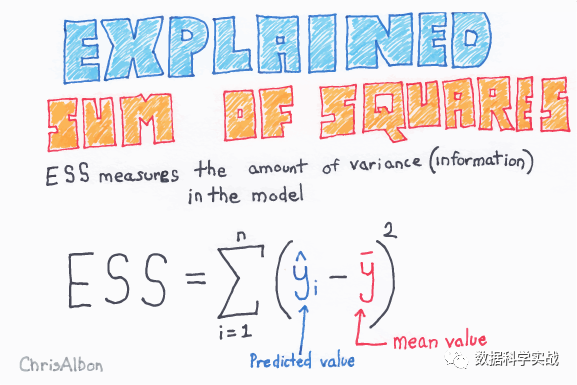 EXPLAINED
SUM OF SQUARES
ESS measures the amount of variance (information)
in the model
n
2
ESS = ∑ (ŷi − ȳ)
i=1
mean value
Predicted value
ChrisAlbon
数据科学实战